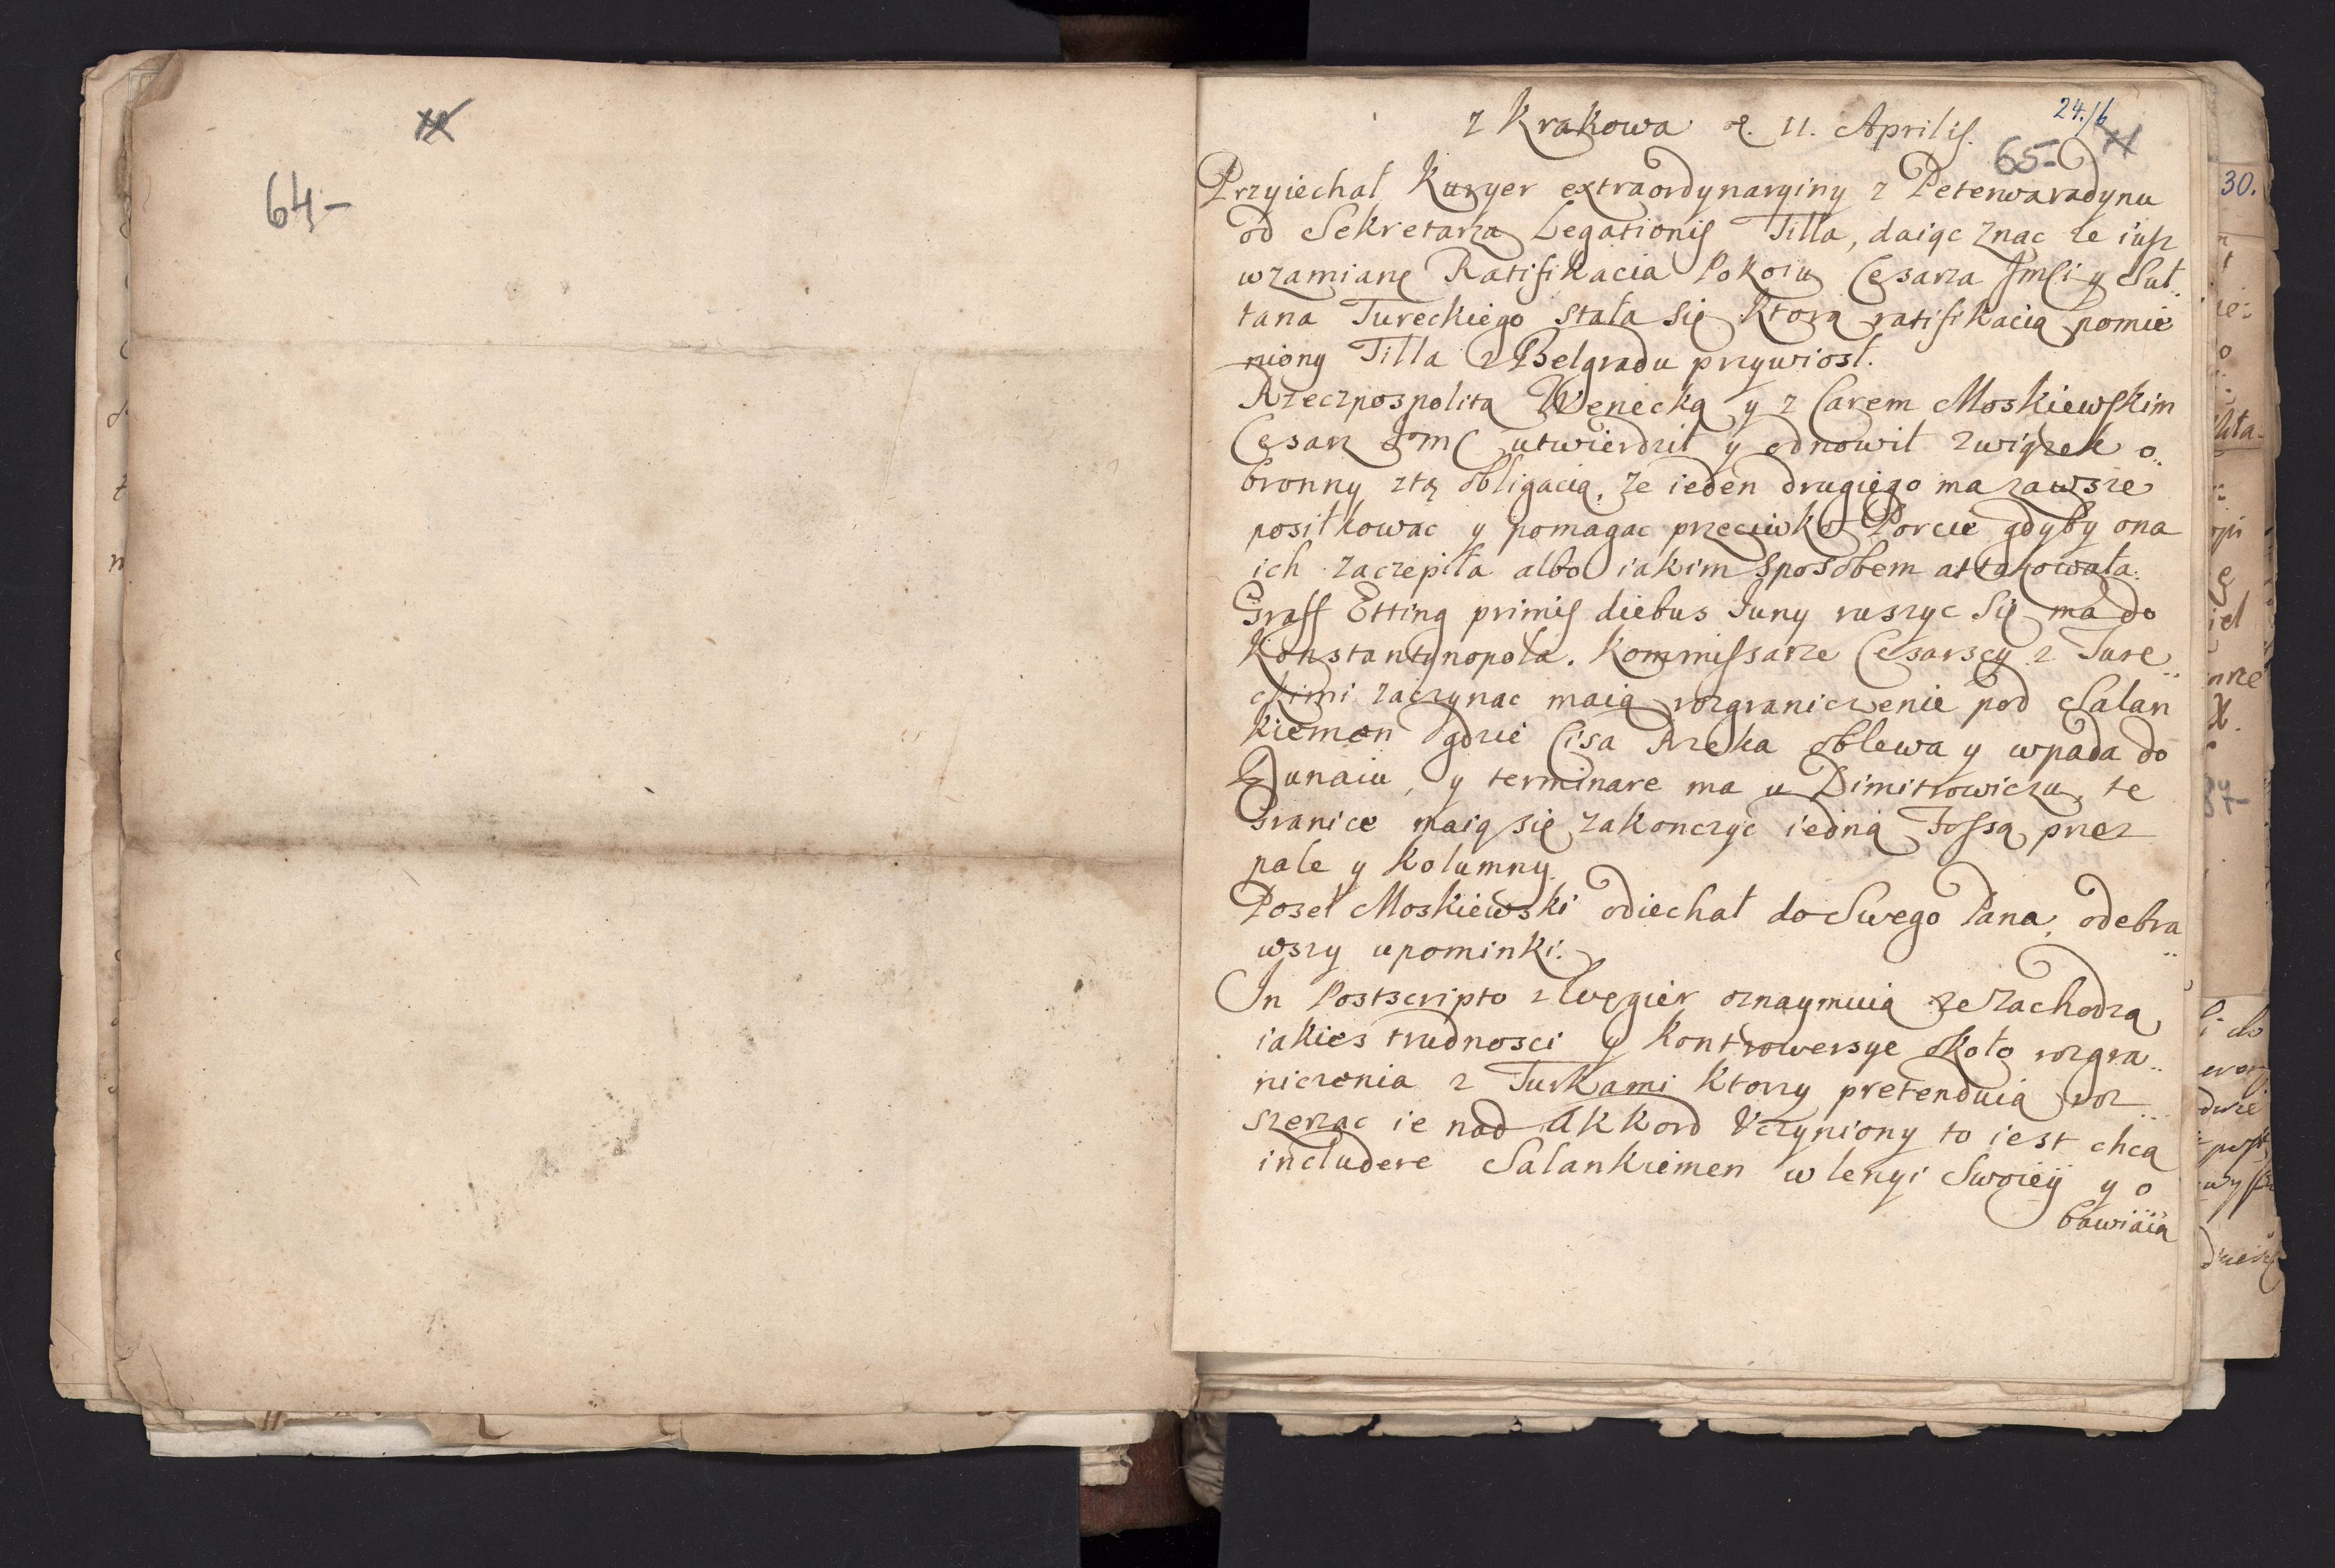 64-
z Krakowa d. 11. Aprilis.
24./6
65-
Przyiechał Kuryer extraordynaryiny z Peterwaradynu
od Sekretarza Legationis Tilla, daiąc znac ze iusz
wzamianę Ratifikacia Pokoiu Cesarza Jmści y Suł..
tana Tureckiego stała się ktorą ratifikacią pomie
niony Tilla z Belgradu przywiosł.
Rzeczpospolitą Wenecką y z Carem Moskiewskim
Cesarz JmC utwierdził y odnowił związek o..
bronny ztą obligacią, ze ieden drugiego ma zawsze
posiłkowac y pomagac przeciwko Porcie gdyby ona
ich zaczepiła albo iakim sposobem attakowała.
Graff Etting primis diebus Juny ruszyc się ma do
Konstantynopola. Kommissarze Cesarscy z Ture..
ckimi zaczynac maią rozgraniczenie pod Salan
kiemen gdzie Cisa Rzeka oblewa y wpada do
Dunaiu, y terminare ma u Dimitrowiczu, te
Granice maią się zakonczyc iedną Fossą przez
pale y kolumny.
Poseł Moskiewski odiechał do Swego Pana, odebra..
wszy upominki.
In Postscripto z Węgier oznaymuią ze zachodzą
iakies trudnosci y kontrowersye około rozgra..
niczenia z Turkami ktorzy pretenduią roz...
szerzac ie nad Akkord Vczyniony to iest chcą
includere Salankiemen w lenyi Swoieÿ y o
bawiaią
30.